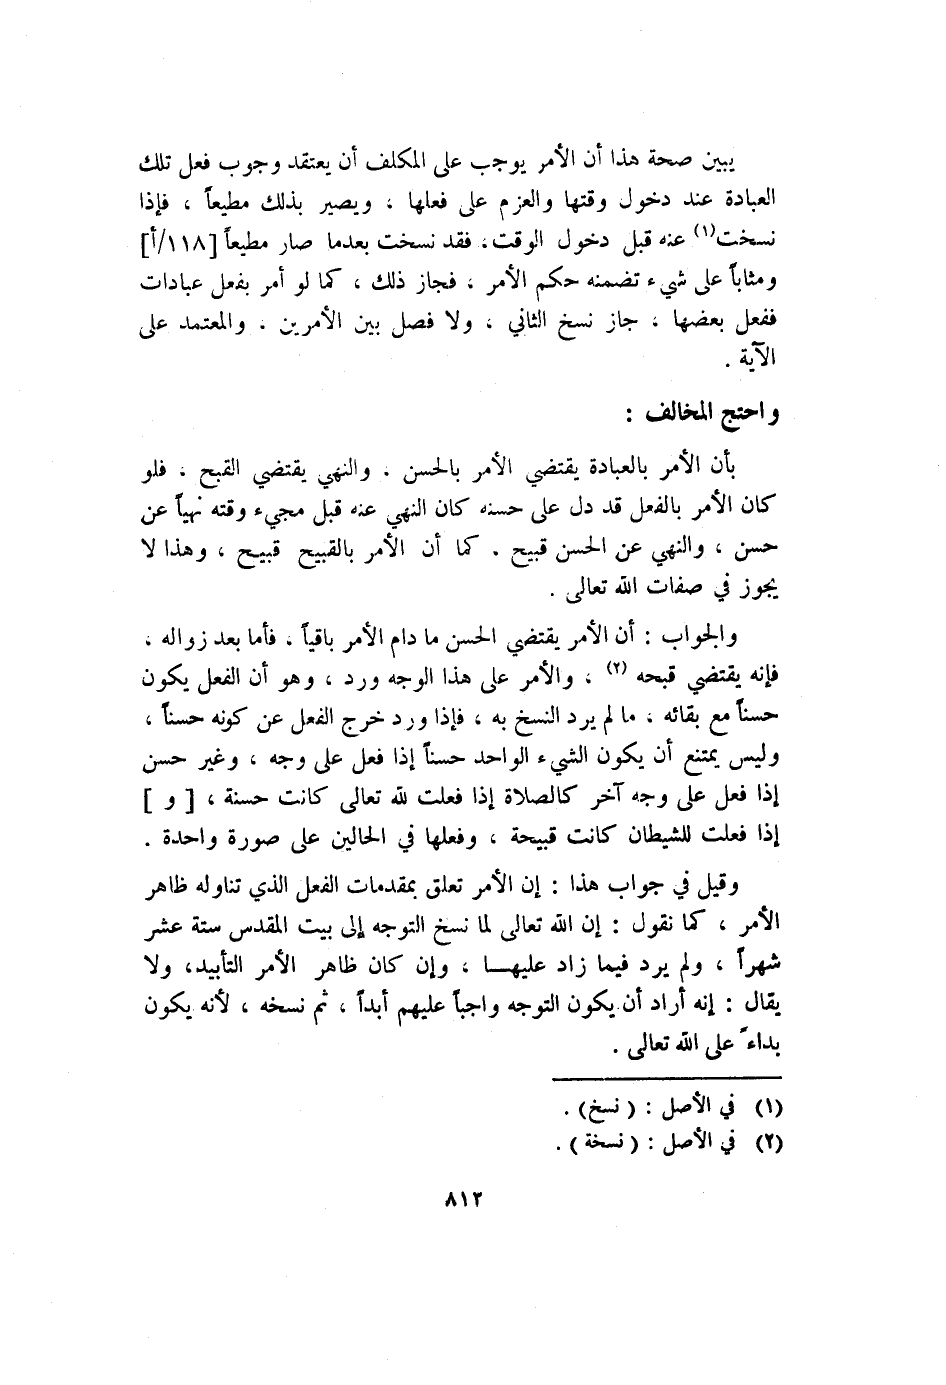 يبين صحة هذا أن الأمر يوجب على المكلف أن يعتقد وجوب فعل تلك
العبادة عند دخول وقتها والعزم على فعلها ، ويصير بذلك مطيعاً ، فإذا
نسخت(١) عنه قبل دخول الوقت، فقد نسخت بعدما صار مطيعاً [١١٨/أ]
ومثاباً على شيء تضمنه حكم الأمر ، فجاز ذلك ، كما لو أمر بفعل عبادات
ففعل بعضها ، جاز نسخ الثاني ، ولا فصل بين الأمرين . والمعتمد على
الآية .
واحتج المخالف :
بأن الأمر بالعبادة يقتضي الأمر بالحسن . والنهي يقتضي القبح ، فلو
كان الأمر بالفعل قد دل على حسنه كان النهي عنه قبل مجيء وقته نهياً عن
حسن ، والنهي عن الحسن قبيح . كما أن الأمر بالقبيح قبيح ، وهذا لا
يجوز في صفات الله تعالى .
والجواب : أن الأمر يقتضي الحسن ما دام الأمر باقياً . فأما بعد زواله ،
فإنه يقتضي قبحه (٢) ، والأمر على هذا الوجه ورد ، وهو أن الفعل يكون
حسناً مع بقائه ، ما لم يرد النسخ به ، فإذا ورد خرج الفعل عن كونه حسناً ،
وليس يمتنع أن يكون الشيء الواحد حسناً إذا فعل على وجه ، وغير حسن
إذا فعل على وجه آخر كالصلاة إذا فعلت لله تعالى كانت حسنة ، [ و ]
إذا فعلت للشيطان كانت قبيحة ، وفعلها في الحالين على صورة واحدة .
وقيل في جواب هذا : إن الأمر تعلق بمقدمات الفعل الذي تناوله ظاهر
الأمر ، كما نقول : إن الله تعالى لما نسخ التوجه إلى بيت المقدس ستة عشر
شهراً ، ولم يرد فيما زاد عليهـا ، وإن كان ظاهر الأمر التأبيد، ولا
يقال : إنه أراد أن يكون التوجه واجباً عليهم أبداً ، ثم نسخه ، لأنه يكون
بداءً على الله تعالى .
(١) في الأصل : ( نسخ) .
(٢) في الأصل : ( نسخة ) .
٨١٢